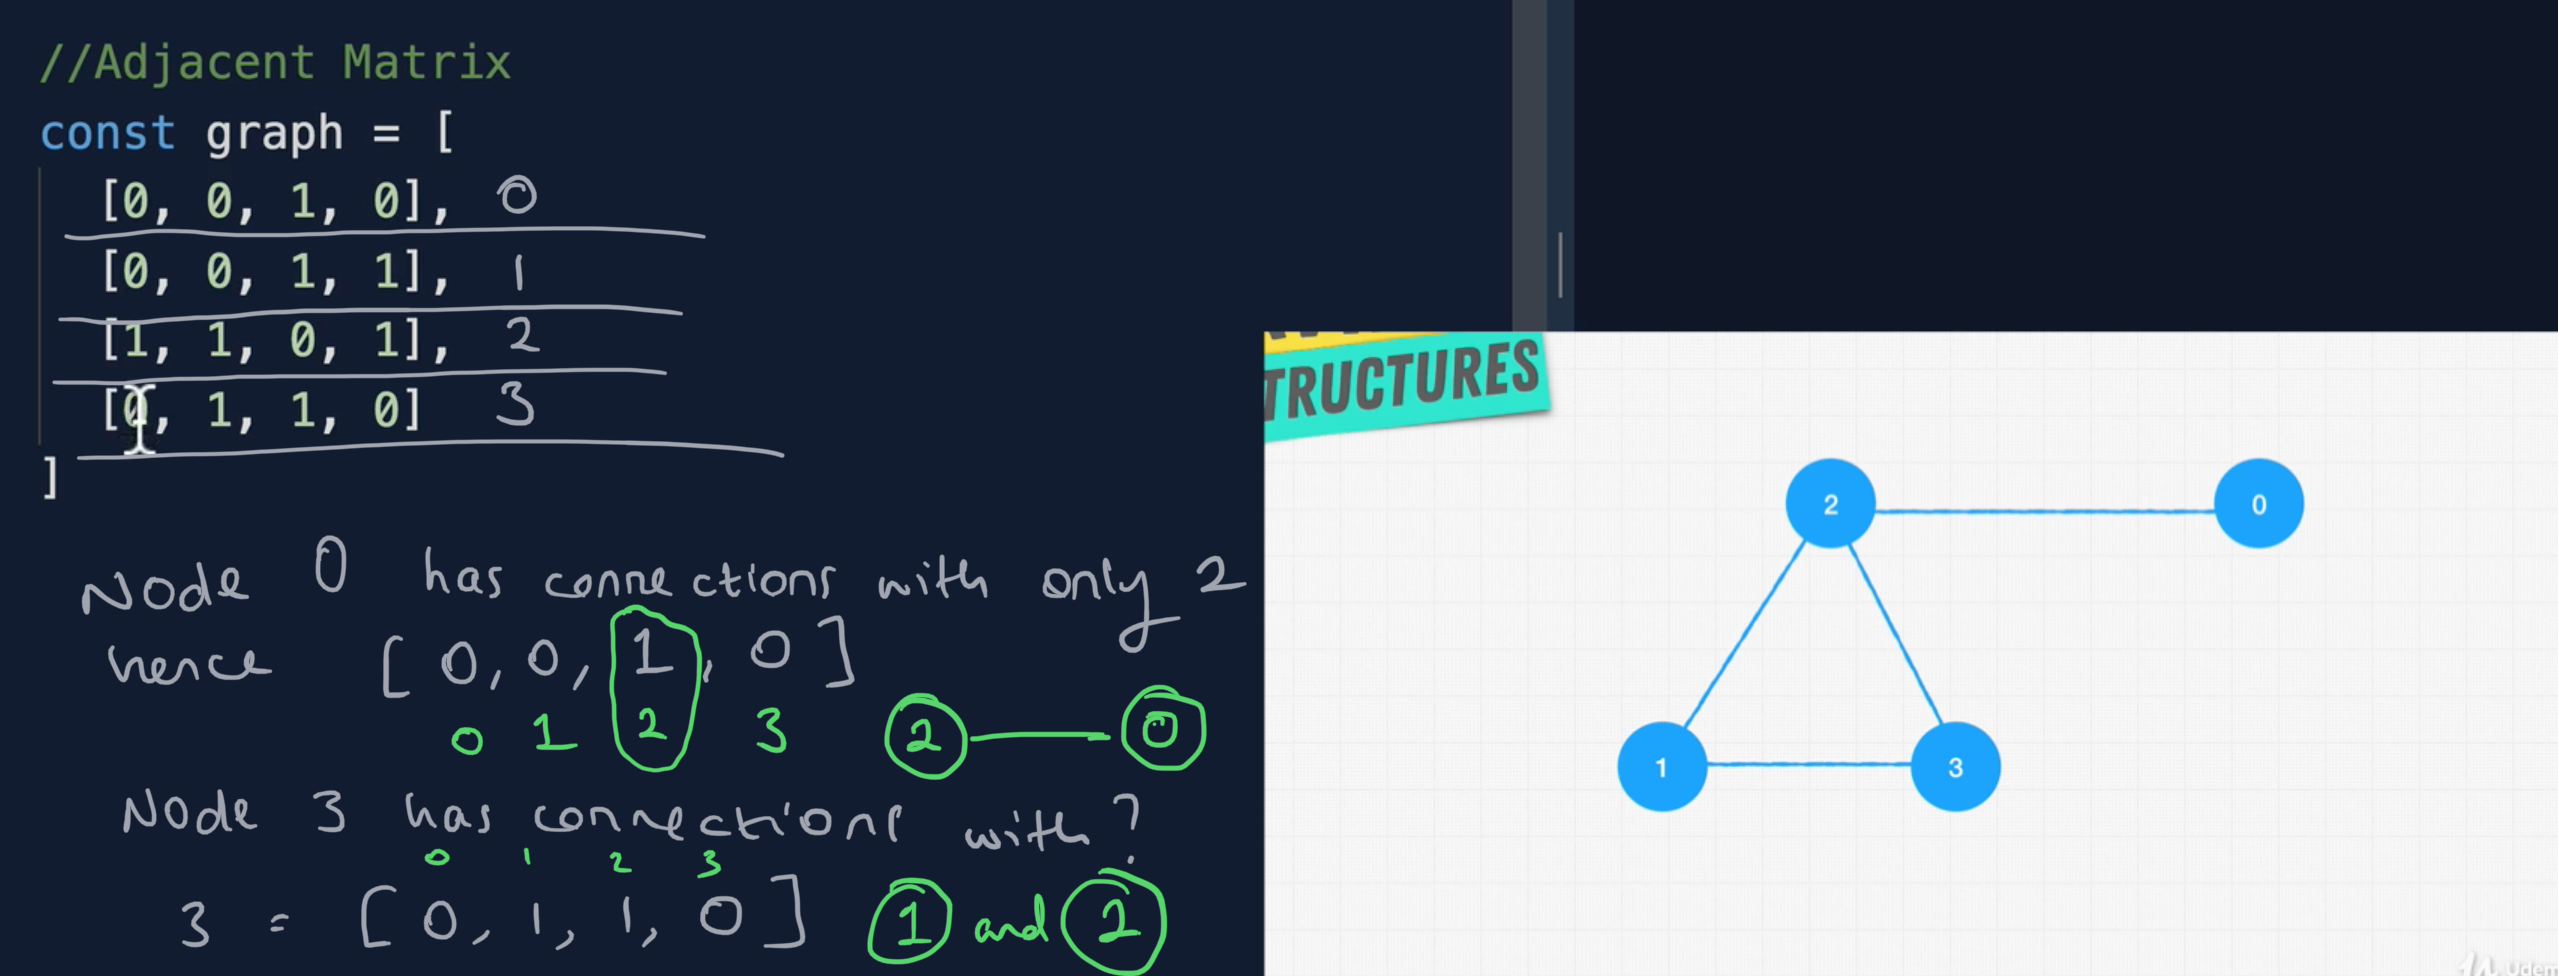 //Adjacent Matrix
const graph = [
[0, 0, 1, 0], 0
[0, 0, 1, 1], 1
[1, 1, 0, 1], 2
[0, 1, 1, 0] 3
]
Node 0 has connections with only 2
hence [0, 0, 1, 0]
0 1 2 3 2 0
Node 3 has connections with?
0 1 2 3
3 = [0, 1, 1, 0] 1 and 2
TRUCTURES
2 0
1 3